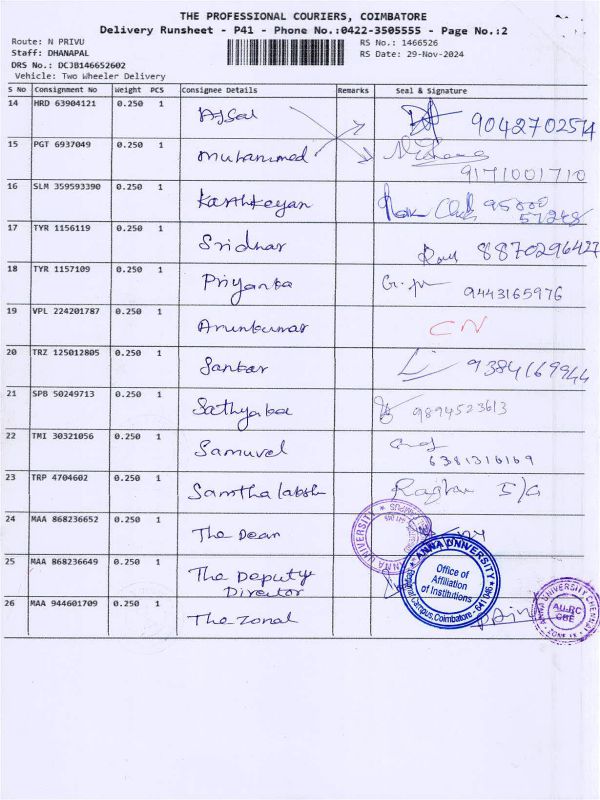 THE PROFESSIONAL COURIERS, COIMBATORE
Delivery Runsheet - P41 - Phone No.:0422-3505555 - Page No.:2
Route: N PRIVU
RS No.: 1466526
Staff: DHANAPAL
RS Date: 29-Nov-2024
DRS No.: DCJB146652602
Vehicle: Two Wheeler Delivery
S No Consignment No Weight PCS Consignee Details Remarks Seal & Signature
14 HRD 63904121 0.250 1 Afsal 9042702514
15 PGT 6937049 0.250 1 Muhammed
9171001710
16 SLM 359593390 0.250 1 Karthkeyan 95000
57248
17 TYR 1156119 0.250 1 Sridhar 8870296427
18 TYR 1157109 0.250 1 Priyanka 9443165976
19 VPL 224201787 0.250 1 Arunkumar CN
20 TRZ 125012805 0.250 1 Sankar 9384169944
21 SPB 50249713 0.250 1 9894523613
22 TMI 30321056 0.250 1 Samuvel
6381316169
23 TRP 4704602 0.250 1
24 MAA 868236652 0.250 1 The Dean
25 MAA 868236649 0.250 1 The Deputy
Director
26 MAA 944601709 0.250 1 The Zonal
ANNA UNIVERSITY
Office of
Affiliation
of Institutions
Regional Campus, Coimbatore - 641 046
ANNA UNIVERSITY CHENNAI
AU-RC
CBE